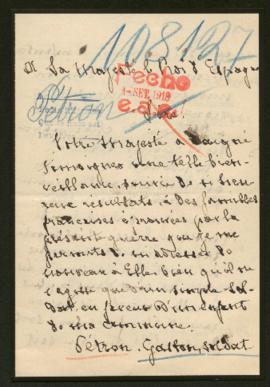 108127
A Sa Majesté le Roi d'Espagne
Fecho
4-SET. 1918
e.a.e.
Pétron
Sire!
Votre Majesté a daigné
témoigner une telle bien-
veillance, suivie de si heu-
reux résultats à des familles
françaises éprouvées par la
présente guerre que je me
permets de m'adresser de
nouveau à Elle bien qu'il ne
s'agisse que d'un simple sol-
dat, en faveur d'un enfant
de ma commune.
Pétron Gaston, soldat